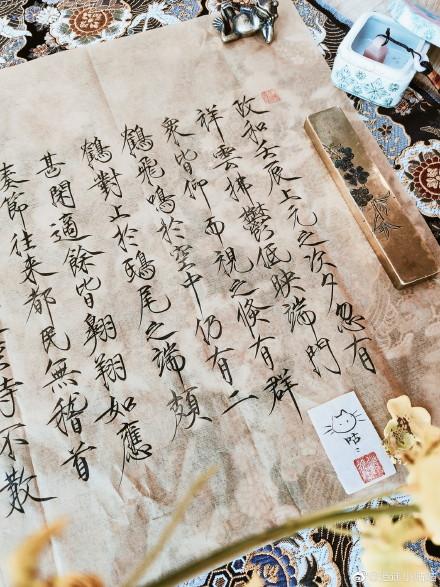 政和壬辰上元之次夕忽有
祥雲拂鬱低映端門
衆皆仰而視之倏有群
鶴飛鳴於空中仍有二
鶴對止於鴟尾之端頗
甚閑適餘皆翱翔如應
奏節往來都民無稽首
不歎
咕